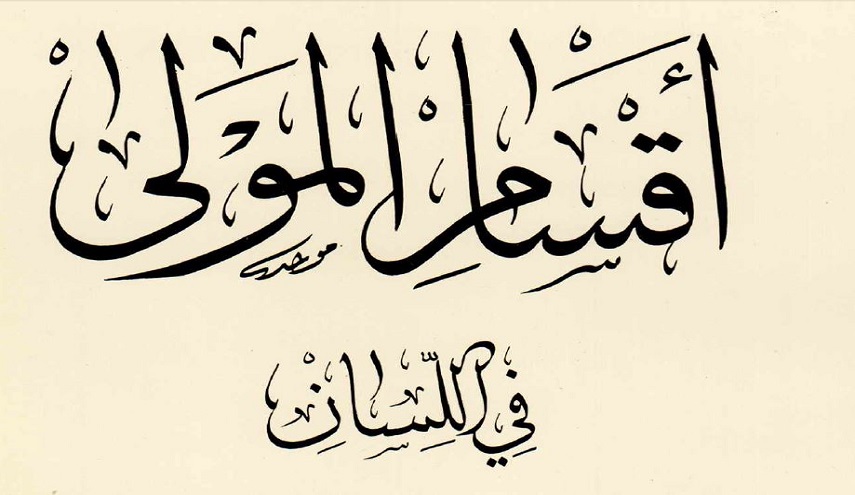 أقسام المولى
في اللسان